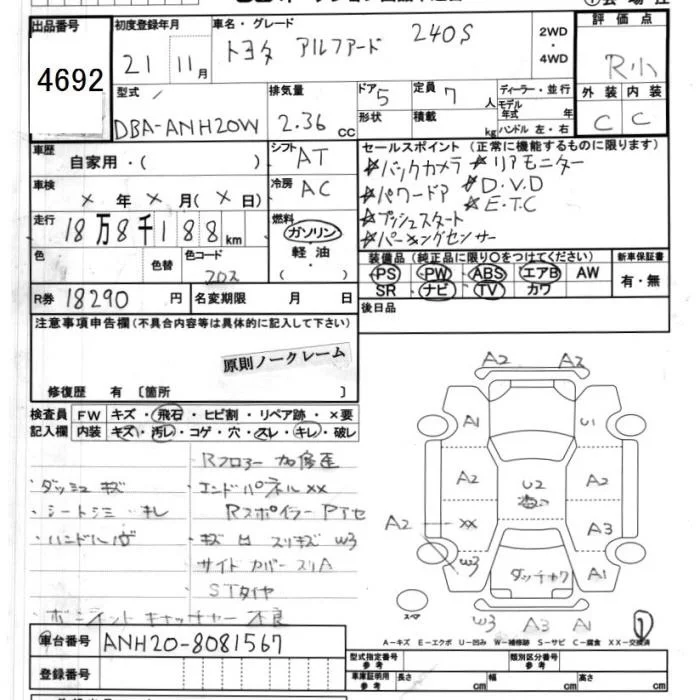 出品番号
4692
初度登録年月
21 11月
車名・グレード
トヨタ アルファード 240S
2WD
・
4WD
評価点
R小
外装 内装
C C
型式
DBA-ANH20W
排気量
2.36 cc
ドア 5
形状
定員 7 人
積載 kg
ディーラー・並行
モデル年式 年
ハンドル 左・右
車歴 自家用・( )
シフト AT
車検 × 年 × 月( × 日)
冷房 AC
走行 18万8千188 km
燃料
ガソリン
軽油
( )
色 色替 色コード
クロス
R券 18290 円
名変期限 月 日
セールスポイント(正常に機能するものに限ります)
☆バックカメラ ☆リアモニター
☆パワードア ☆D.V.D
☆プッシュスタート ☆E.T.C
☆パーキングセンサー
装備品(純正品に限り○をつけてください)
PS PW ABS エアB AW
SR ナビ TV カワ
新車保証書
有・無
後日品
注意事項申告欄(不具合内容等は具体的に記入して下さい)
原則ノークレーム
修復歴 有 〔箇所 〕
検査員記入欄
FW キズ・飛石・ヒビ割・リペア跡・×要
内装 キズ・汚レ・コゲ・穴・スレ・キレ・破レ
・Rフロアー 加修歪
・ダッシュ キズ ・エンドパネル ××
・シートシミ キレ Rスポイラー
・ハンドル ・キズ 凹 スリキズ W3
サイドカバースリA
STタイヤ
キャッチャー 不良
A2 A2
A1 U1
A2 U2 A2
A2 XX A3
W3 ダッチャク A1
スペア
W3 A3 A1
①
A－キズ E－エクボ U－凹み W－補修跡 S－サビ C－腐食 XX－交換済
車台番号 ANH20-8081567
登録番号
型式指定番号 参考
類別区分番号 参考
車庫証明用 参考 長さ cm 幅 cm 高さ cm